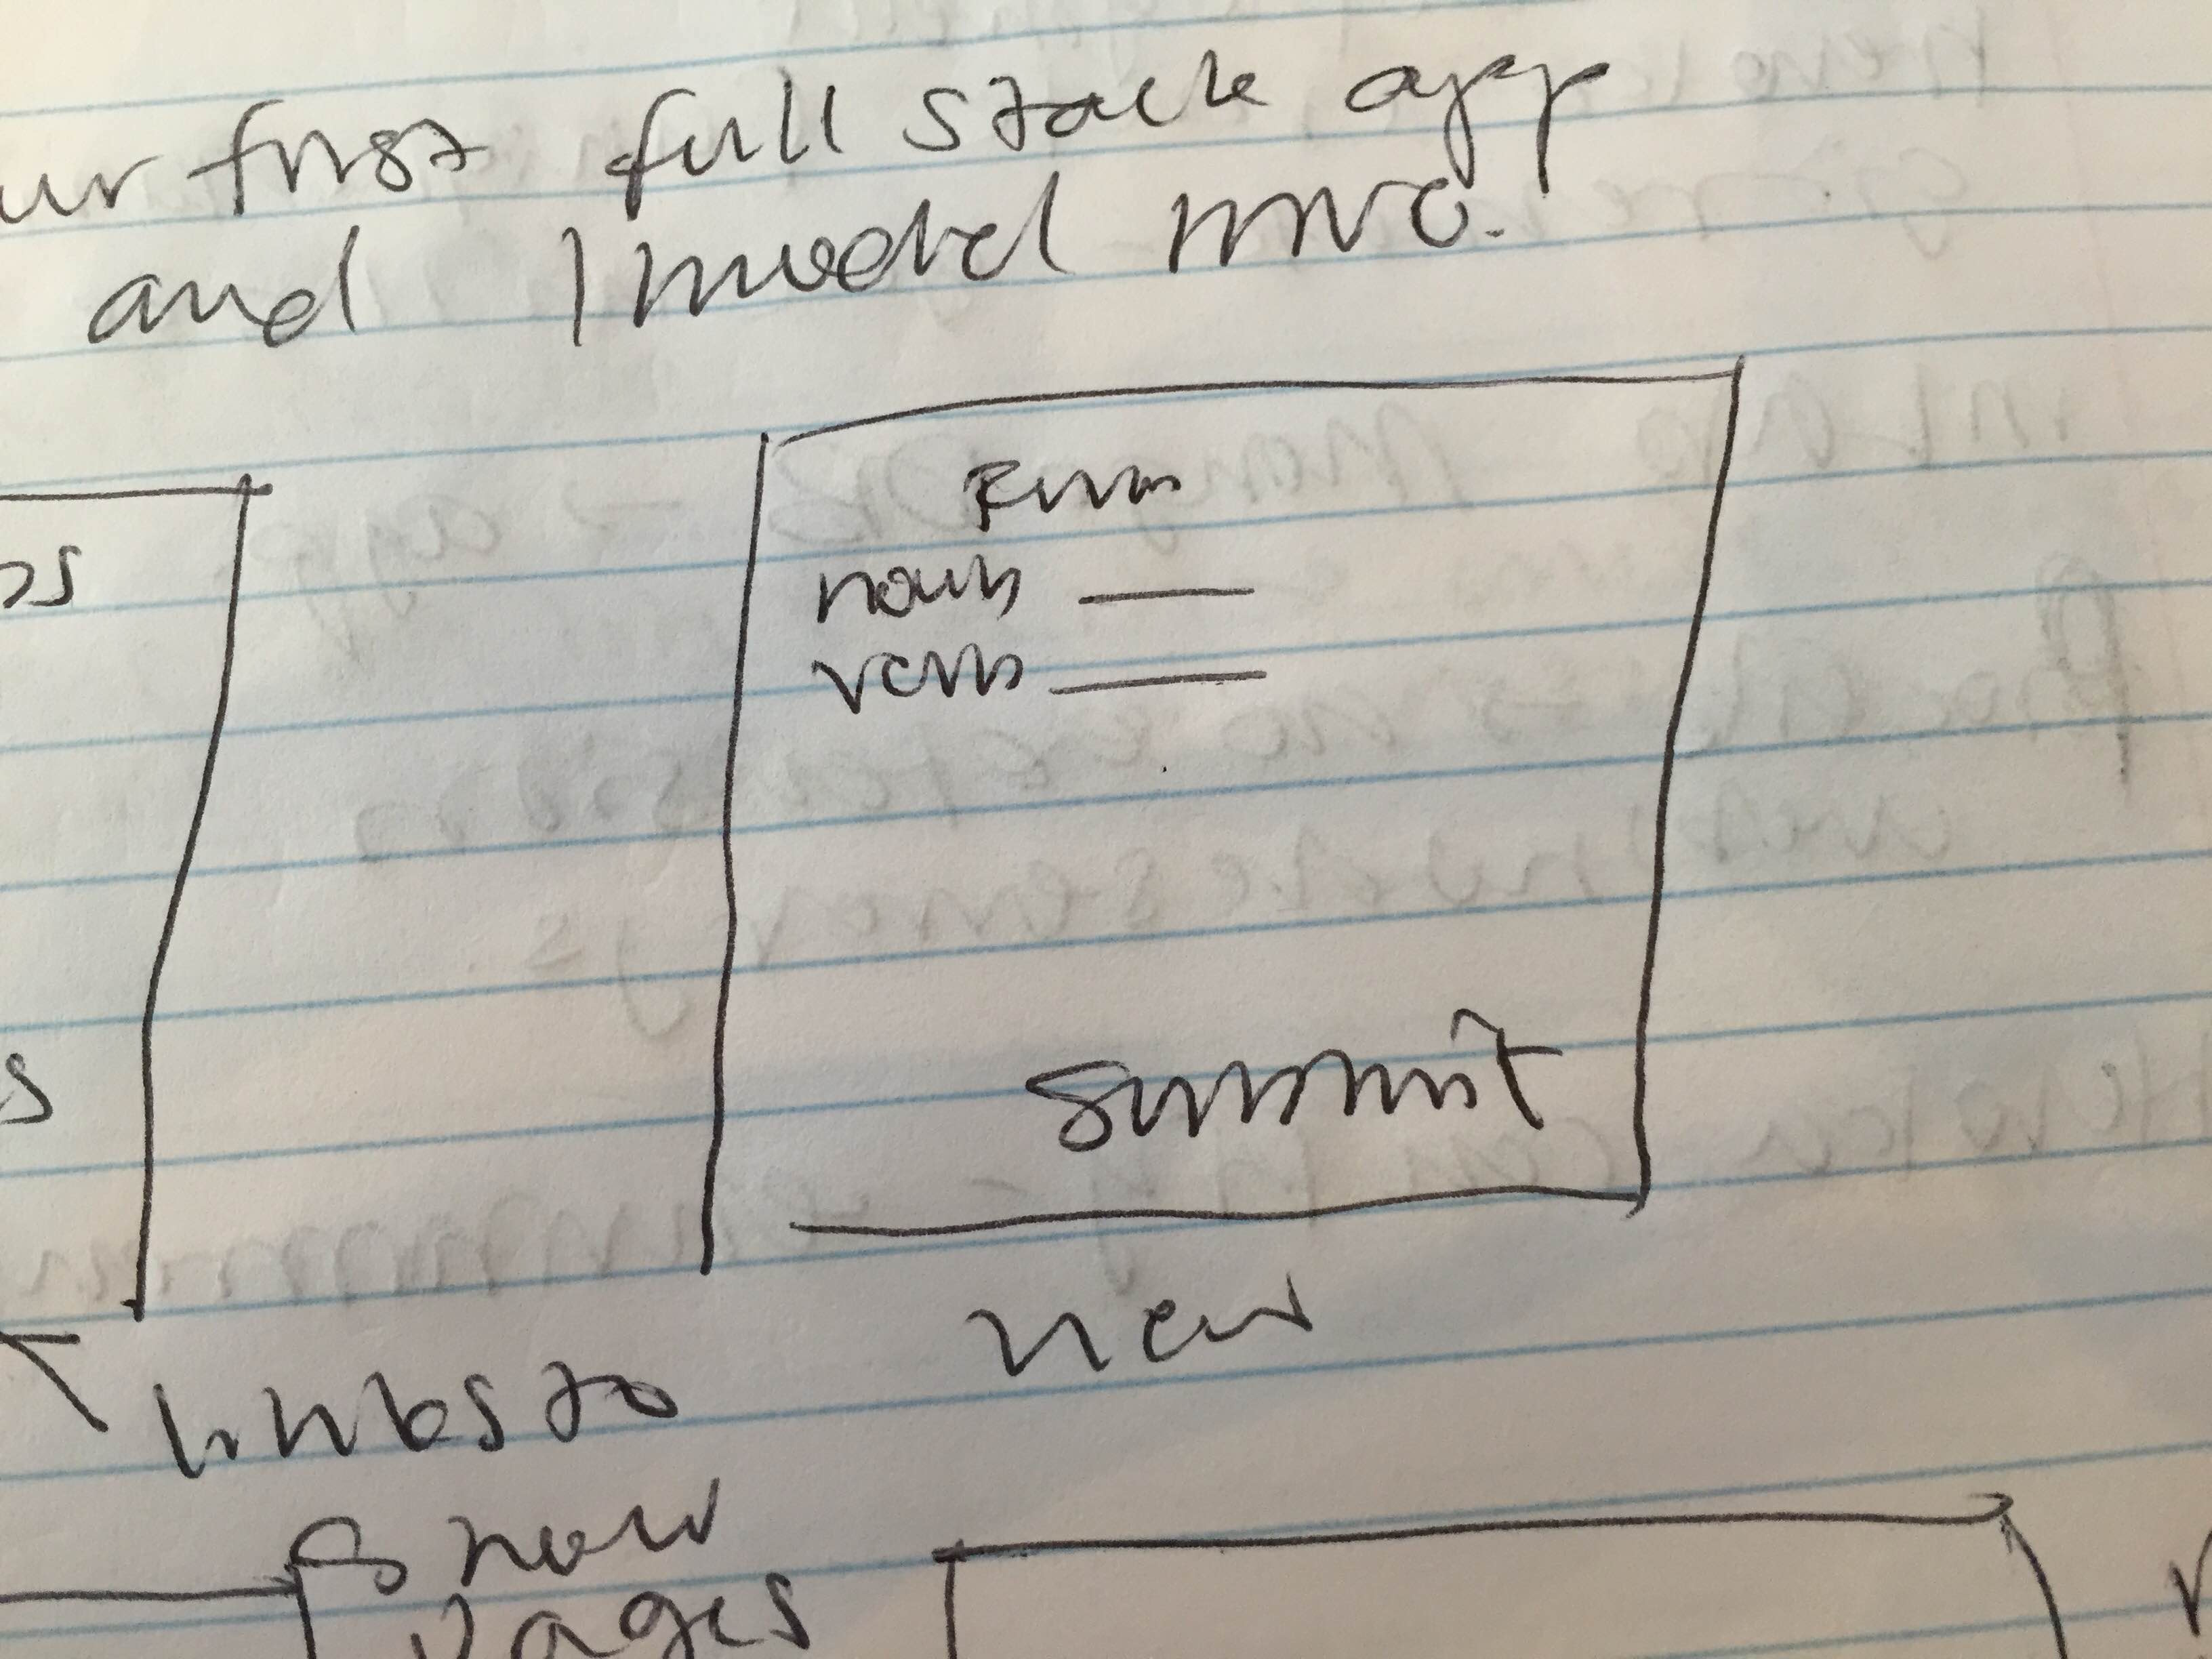 ur first full stack app
and 1 model MVC.
Form
noun
verb
Submit
new
links to
show
pages